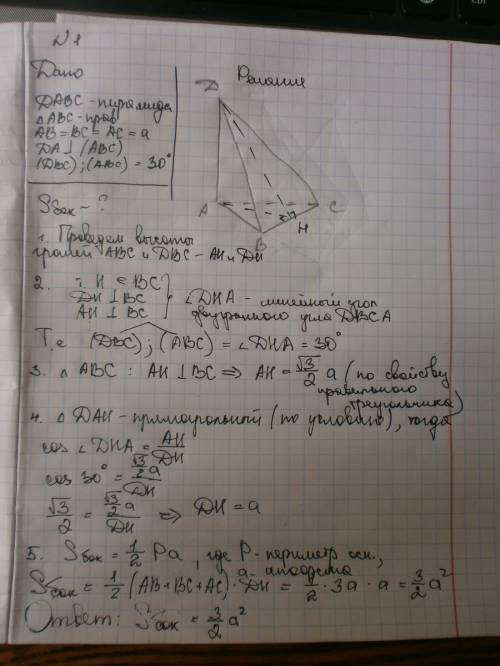 N 1
Дано
Решение
DABC - пирамида
△ABC - прав
AB = BC = AC = a
DA ⊥ (ABC)
(DBC) ; (ABC) = 30°
Sбок - ?
D
A
B
C
H
1. Проведем высоты
граней ABC и DBC - AH и DH
2. т. H ∈ BC
DH ⊥ BC
AH ⊥ BC } ∠DHA - линейный угол
двугранного угла DBCA
Т.е (DBC) ; (ABC) = ∠DHA = 30°
3. △ABC : AH ⊥ BC ⇒ AH = √3/2 a (по свойству
правильного
треугольника)
4. △DAH - прямоугольный (по условию), тогда
cos ∠DHA = AH/DH
cos 30° = √3/2 a / DH
√3/2 = √3/2 a / DH ⇒ DH = a
5. Sбок = 1/2 Pa, где P - периметр осн.,
a - апофема
Sбок = 1/2 (AB + BC + AC) · DH = 1/2 · 3a · a = 3/2 a²
Ответ: Sбок = 3/2 a²